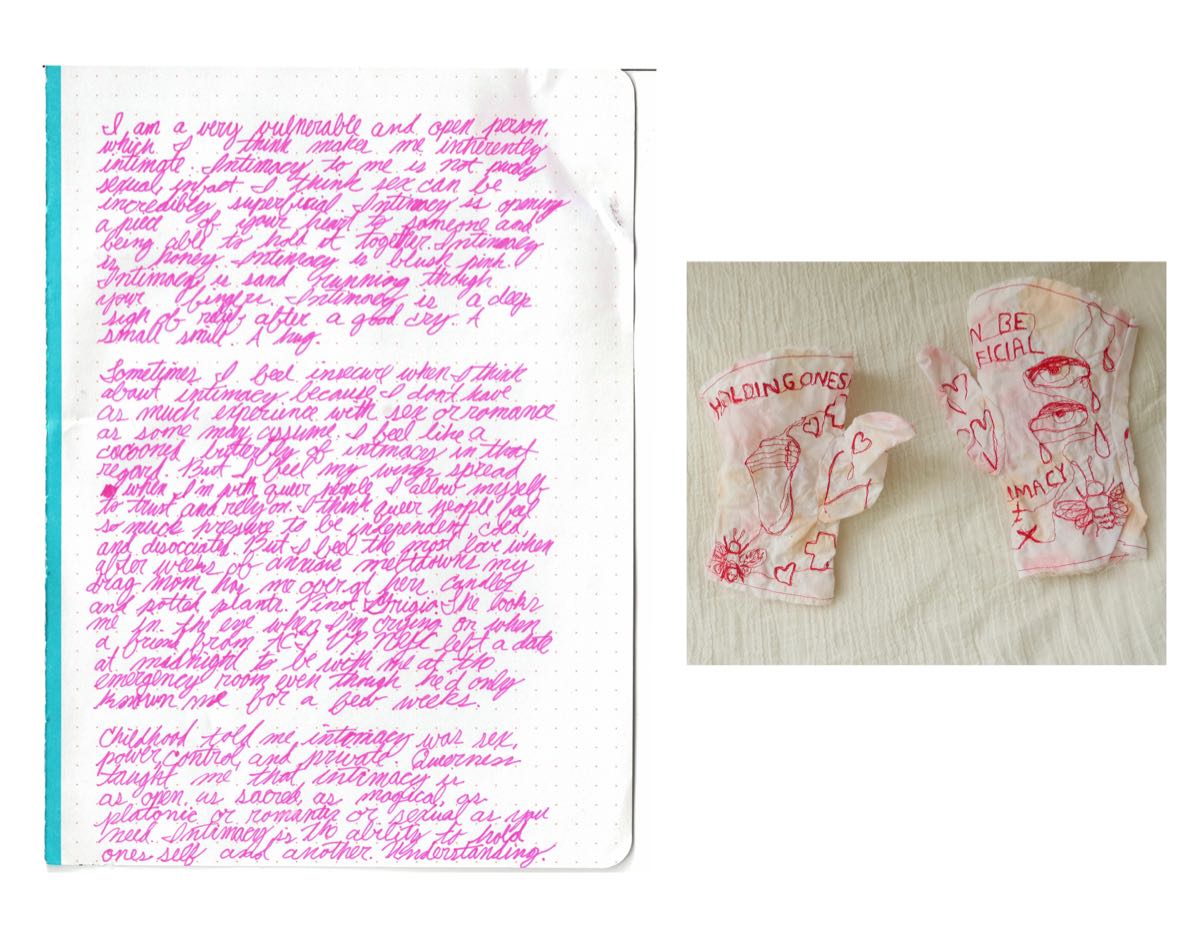 I am a very vulnerable and open person,
which I think makes me inherently
intimate. Intimacy to me is not purely
sexual, infact I think sex can be
incredibly superficial. Intimacy is opening
a piece of your heart to someone and
being able to hold it together. Intimacy
is honey. Intimacy is blush pink.
Intimacy is sand running though
your fingers. Intimacy is a deep
sigh of relief after a good cry. A
small smile. A hug.
Sometimes I feel insecure when I think
about intimacy because I don't have
as much experience with sex or romance
as some may assume. I feel like a
cocooned butterfly of intimacies in that
regard. But I feel my wings spread
when I'm with queer people I allow myself
to trust and rely on. I think queer people feel
so much pressure to be independent, cold,
and disociated. But I feel the most love when
after weeks of anxious meltdowns my
drag mom has me over at hers. Candles
and potted plants. Pinot Grigio. She looks
me in the eye when I'm crying or when
a friend from ACT UP left a date
at midnight to be with me at the
emergency room even though he'd only
known me for a few weeks.
Childhood told me intimacy was sex,
power, control, and private. Queerness
taught me that intimacy is
as open, as sacred, as magical, as
platonic or romantic or sexual as you
need. Intimacy is the ability to hold
ones self and another. Understanding.
HOLDING ONES
N BE
FICIAL
IMACY